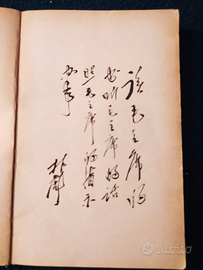 读毛主席的
书 听毛主席的话
照毛主席的指示
办事
林彪
subito